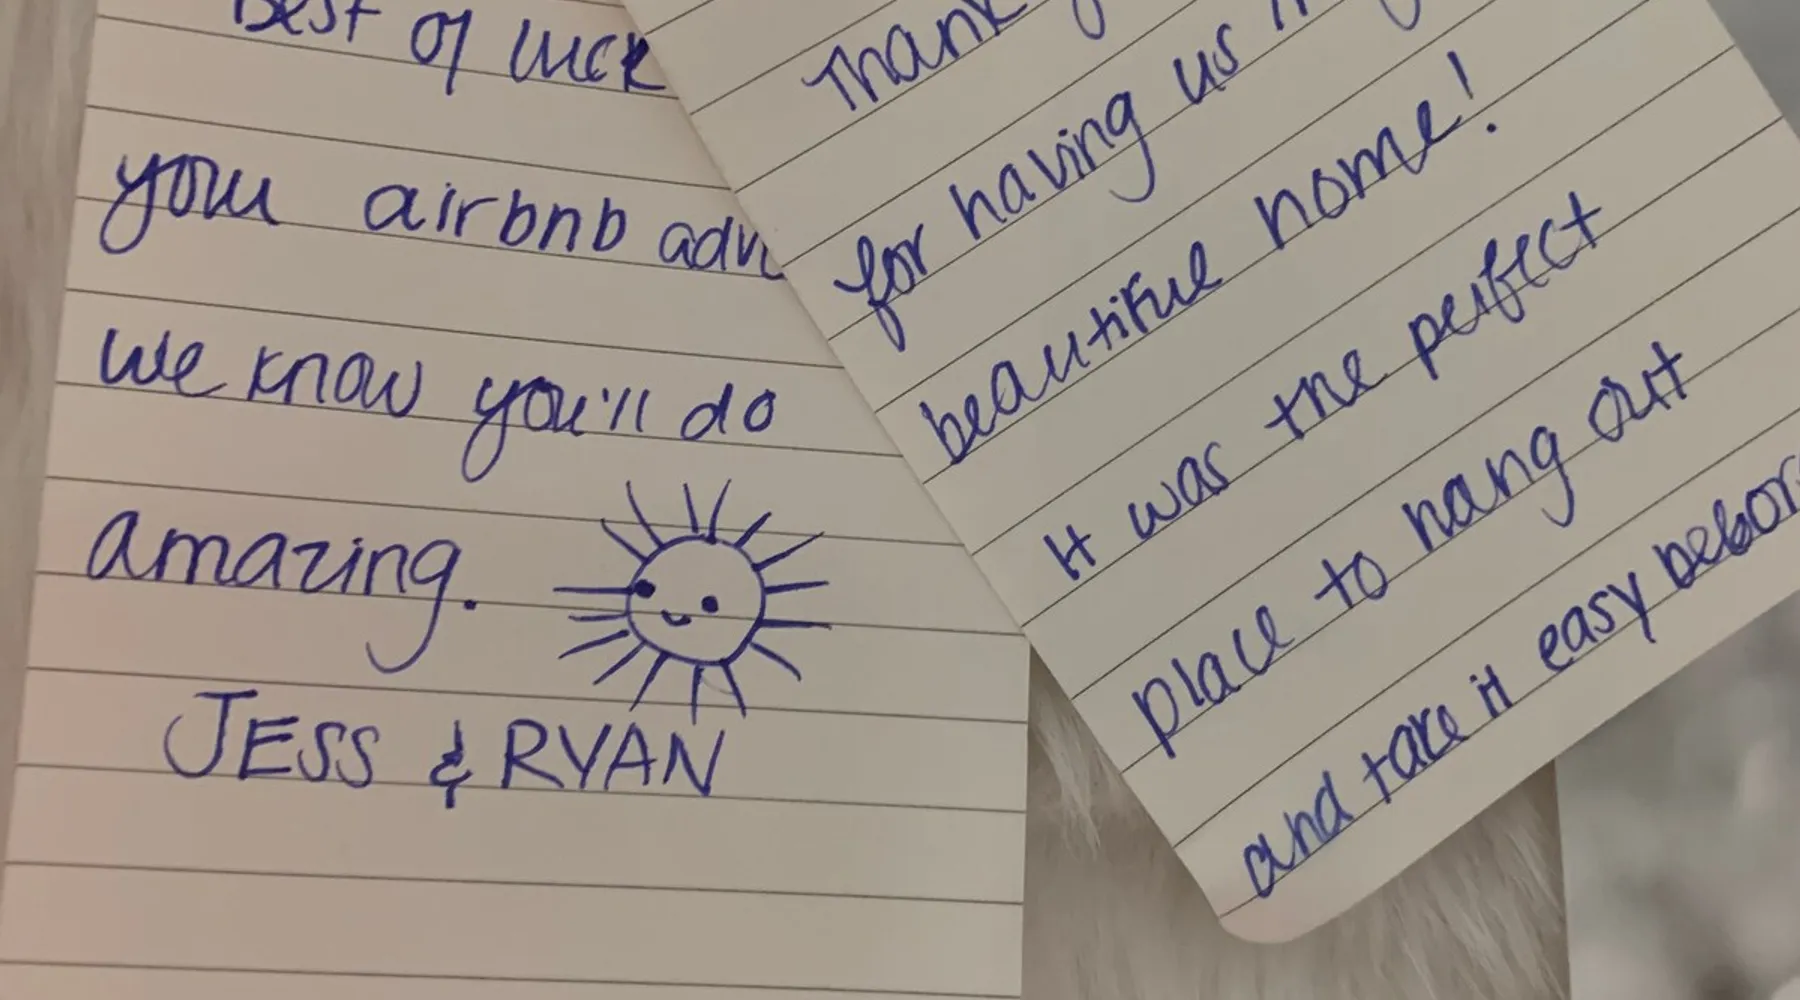 Best of luck
your airbnb adv
we know you'll do
amazing.
JESS & RYAN
Thank
for having us in
beautiful home!
It was the perfect
place to hang out
and take it easy befor